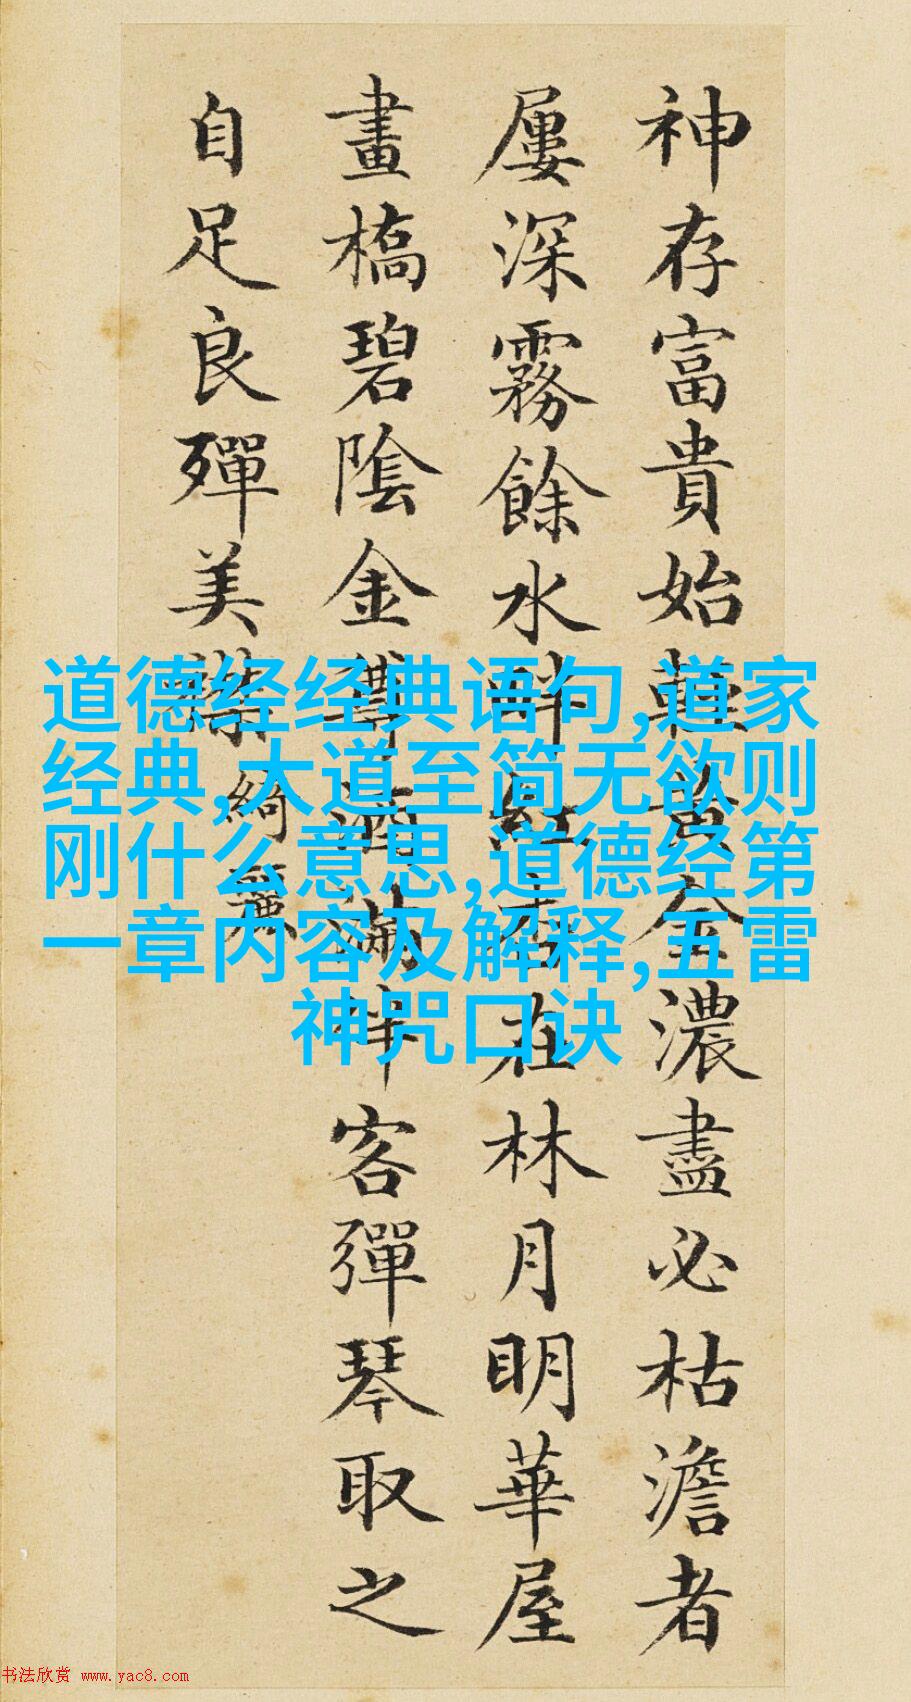 神存富貴始輕黃金濃盡必枯澹者
屢深霧餘水畔紅杏在林月明華屋
畫橋碧陰金罇酒滿伴客彈琴取之
自足良殫美襟綺麗
道德经经典语句,道家
经典,大道至简无欲则
刚什么意思,道德经第
一章内容及解释,五雷
神咒口诀
书法欣赏 www.yac8.com